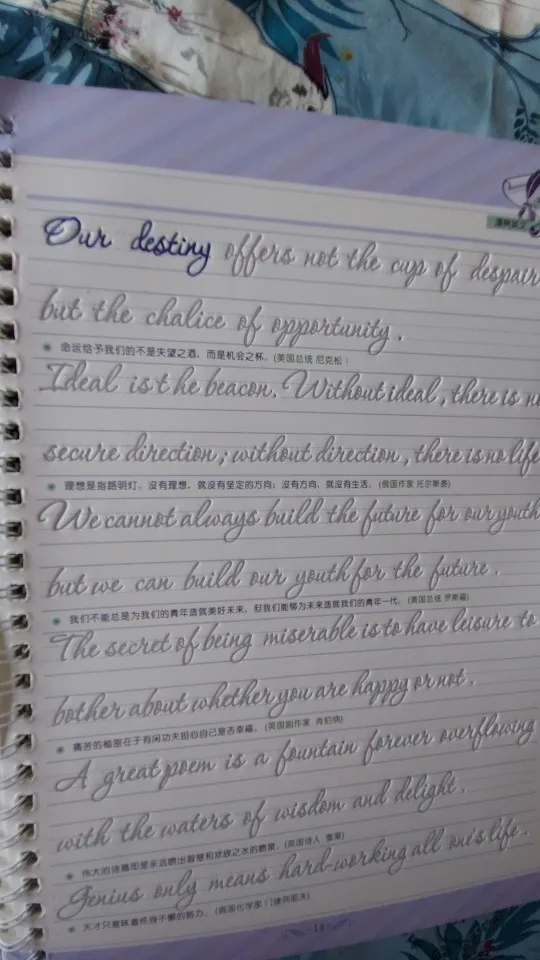 Our destiny offers not the cup of despair
but the chalice of opportunity.
命运给予我们的不是失望之酒，而是机会之杯。(美国总统 尼克松)
Ideal is the beacon. Without ideal, there is
secure direction; without direction, there is no life
理想是指路明灯。没有理想，就没有坚定的方向；没有方向，就没有生活。(俄国作家 托尔斯泰)
We cannot always build the future for our youth
but we can build our youth for the future.
我们不能总是为我们的青年造就美好未来，但我们能够为未来造就我们的青年一代。(美国总统 罗斯福)
The secret of being miserable is to have leisure to
bother about whether you are happy or not.
痛苦的秘密在于有闲功夫担心自己是否幸福。(英国剧作家 肖伯纳)
A great poem is a fountain forever overflowing
with the waters of wisdom and delight.
伟大的诗篇即是永远喷出智慧和欢欣之水的喷泉。(英国诗人 雪莱)
Genius only means hard-working all one's life.
天才只意味着终身不懈的努力。(俄国化学家 门捷列耶夫)